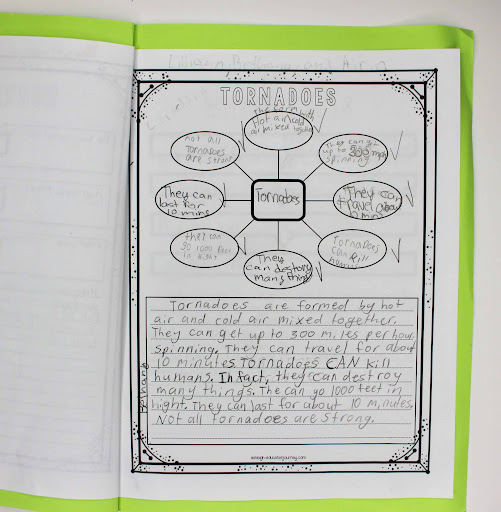 Lillian, Bethany, and
TORNADOES
The form with
Hot air cold
air mixed together
not all
TORNADOES
are strong
They can get
up to 300 mph
spinning
They can
last for
10 mins
Tornadoes
They can
Travel about
10 mins
they can
go 1000 feet
in hight
They
can destory
many things
TORNADOES
can kill
humans
Tornadoes are formed by hot
air and cold air mixed together.
They can get up to 300 miles per hour
spinning. They can travel for about
10 minutes. Tornadoes CAN kill
humans. In fact, they can destroy
many things. The can go 1000 feet in
hight. They can last for about 10 minutes.
Not all Tornadoes are strong.
Bethany